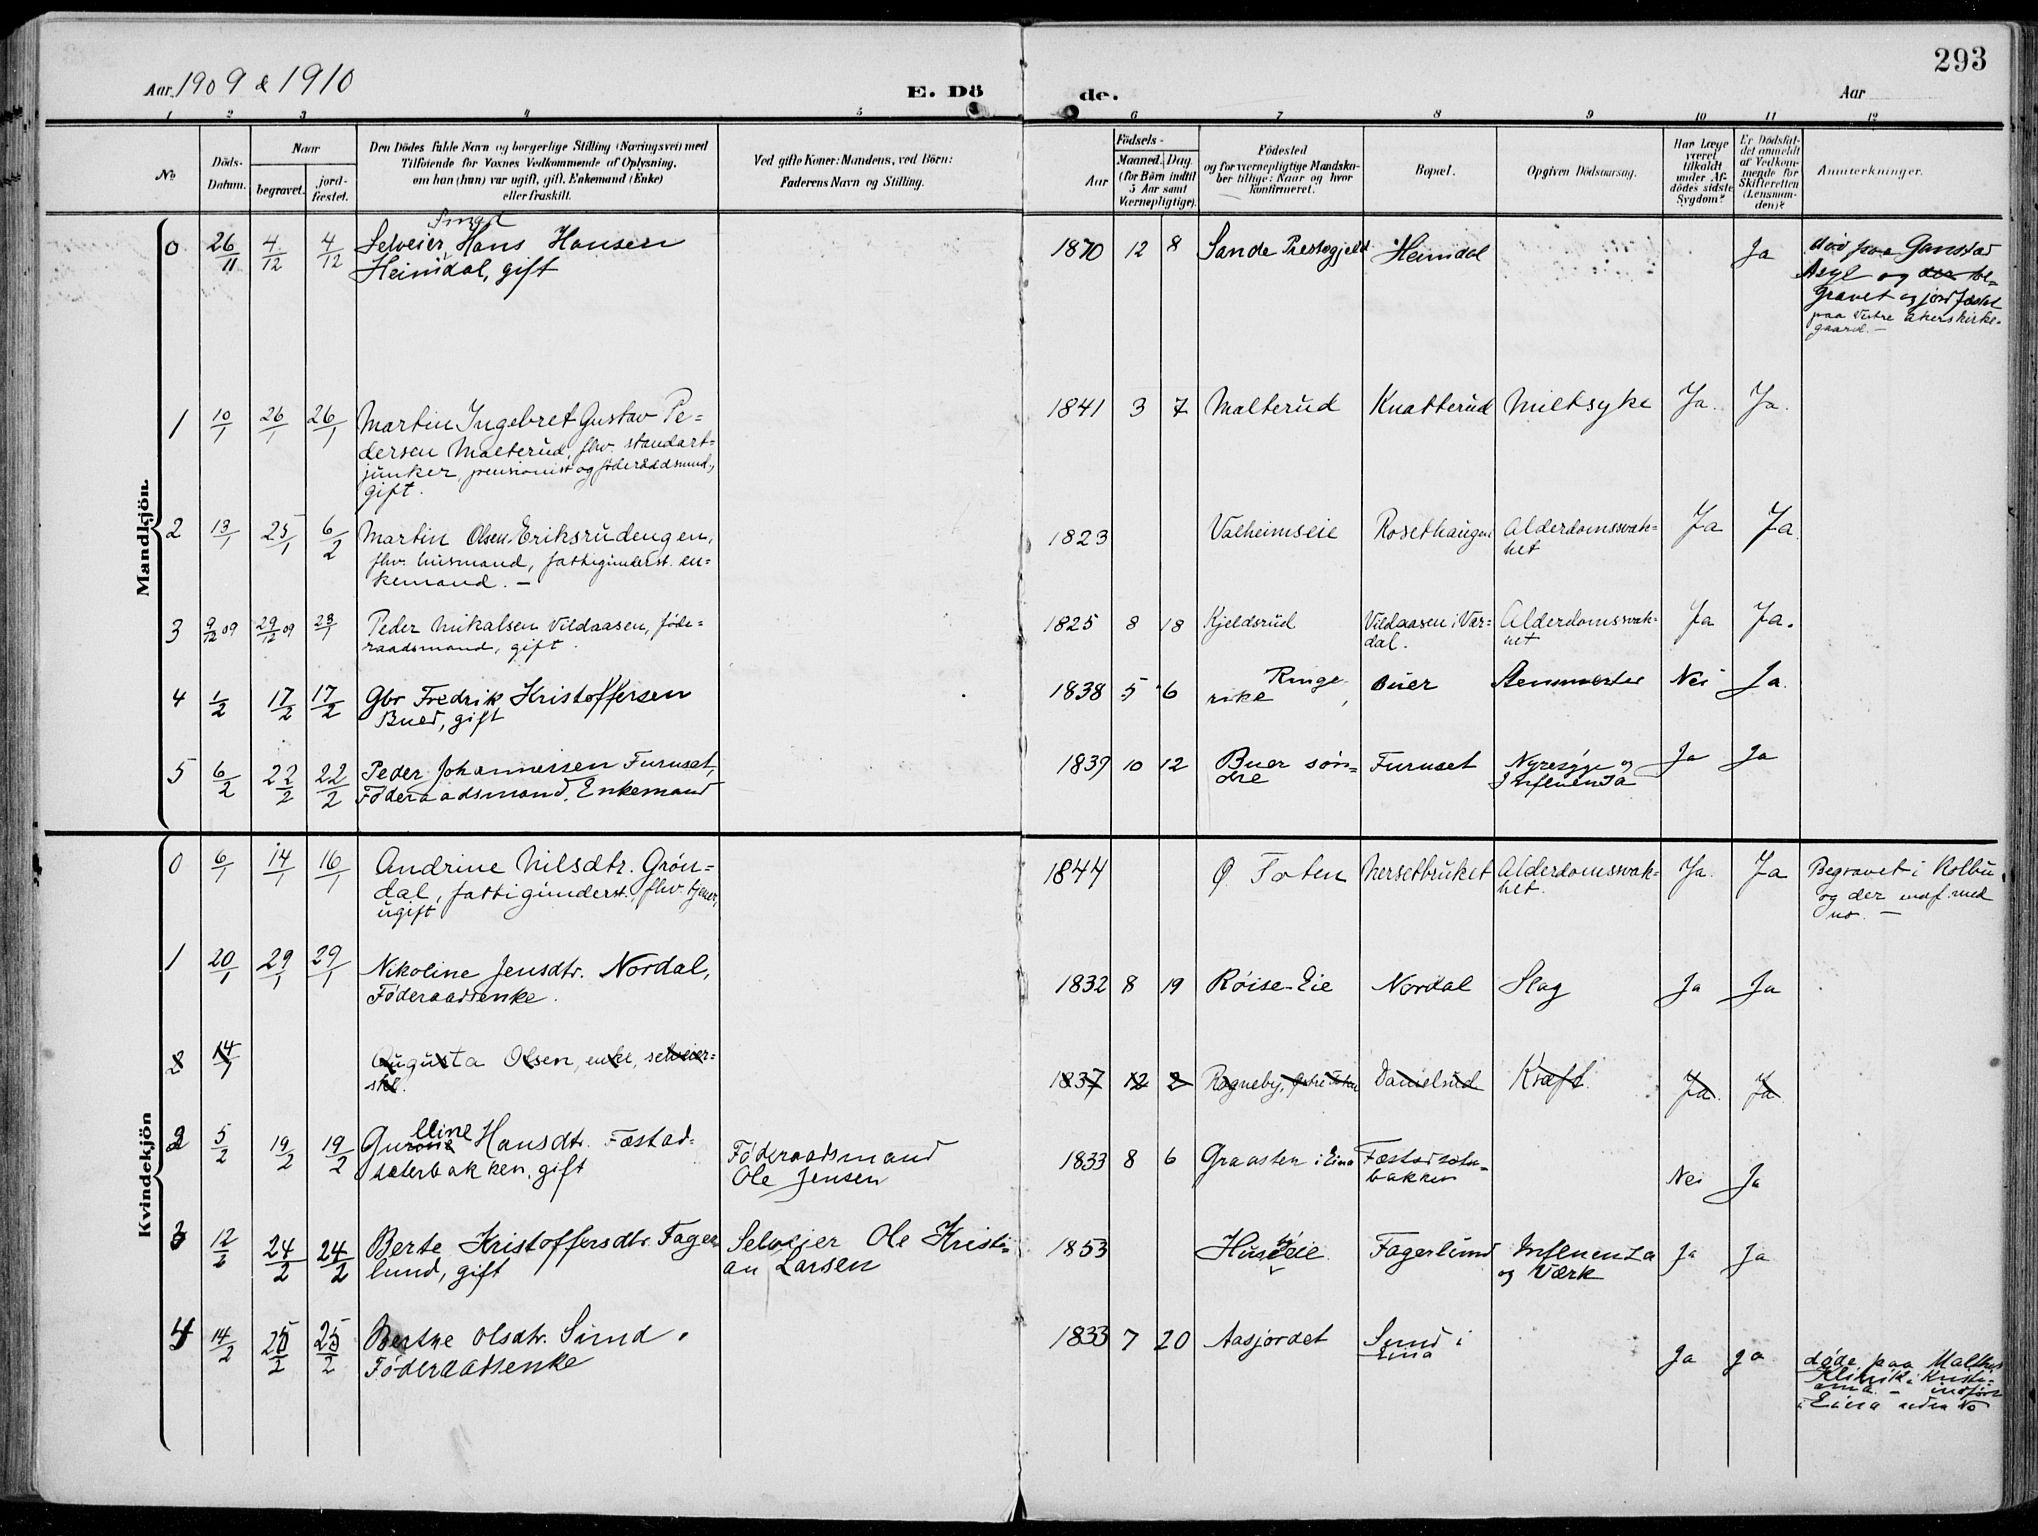 293
Aar 1909 & 1910
E. Dö
de.
Aar
1 2 3 4 5 6 7 8 9 10 11 12
No
Döds-
Datum.
Naar
begravet.
jord-
fæstet.
Den Dödes fulde Navn og borgerlige Stilling (Næringsvei) med
Tilföiende for Voxnes Vedkommende af Oplysning,
om han (hun) var ugift, gift, Enkemand (Enke)
eller fraskilt.
Ved gifte Koner: Mandens, ved Börn:
Faderens Navn og Stilling.
Födsels-
Aar
Maaned.
Dag
(for Börn indtil
5 Aar samt
Værnepligtige).
Födested
og for værnepligtige Mandska-
ber tillige: Naar og hvor
Konfirmeret.
Bopæl.
Opgiven Dödsaarsag.
Har Læge
været
tilkaldt
under Af-
dödes sidste
Sygdom?
Er Dödsfal-
det anmeldt
af Vedkom-
mende for
Skifteretten
(Lensman-
den)?
Anmærkninger.
Mandkjön.
0 26/11 4/12 4/12 Selveier Hans Hansen
Heimdal, gift
1870 12 8 Sande Prestegjeld Heimdal Ja død paa Gaustad
Asyl og der be-
gravet og jordfæstet
paa Vestre Akers kirke-
gaard. -
1 10/1 26/1 26/1 Martin Ingebret Gustav Pe-
dersen Malterud, fhv. standart-
junker, pensionist og føderaadsmand,
gift.
1841 3 7 Malterud Knatterud Miltsyke Ja. Ja.
2 13/1 25/1 6/2 Martin Olsen Eriksrudengen,
fhv. husmand, fattigunderst. en-
kemand. -
1823 Valheimseie Rosethaugen Alderdomssvak-
het Ja Ja.
3 9/12 09 29/12 09 23/1 Peder Mikalsen Vildaasen, føde-
raadsmand, gift.
1825 8 18 Kjeldsrud Vildaasen i Var-
dal. Alderdomssvak-
het Ja Ja.
4 1/2 17/2 17/2 Gbr Fredrik Kristoffersen
Bued, gift
1838 5 6 Ringe-
rike Buer Nei Ja.
5 6/2 22/2 22/2 Peder Johannessen Furuset,
Føderaadsmand, Enkemand
1839 10 12 Buer søn-
dre Furuset Nyresyge og
Influenza Ja Ja
Kvindekjön
0 6/1 14/1 16/1 Andrine Nilsdtr. Grøn-
dal, fattigunderst., fhv. tjener,
ugift
1844 Ø. Toten Nersetbruket Alderdomssvak-
het. Ja. Ja Begravet i Kolbu
og der med
no. -
1 20/1 29/1 29/1 Nikoline Jensdtr. Nordal,
Føderaadsenke.
1832 8 19 Røise-Eie Nordal Slag Ja Ja
2 14/1 Augusta Olsen, enke, selveier-
ske.
1837 12 2 Rogneby, Østre Toten Danielsud Kræft. Ja. Ja.
2 5/2 19/2 19/2 Hansdtr. Fæstad-
sæterbakken, gift
Føderaadsmand
Ole Jensen
1833 8 6 Graasten i Eina Fæstadsæter-
bakken Nei Ja
3 12/2 24/2 24/2 Berte Kristoffersdtr. Fager-
lund, gift
Selveier Ole Kristi-
an Larsen
1853 Fagerlund Influenza
og Værk Ja Ja
4 14/2 25/2 25/2 Berthe Olsdtr. Sund.
Føderaadsenke
1833 7 20 Aasjordet Sund i
Eina Ja Ja døde paa
Klinik i Kristi-
ania. - indført
i Eina uden No